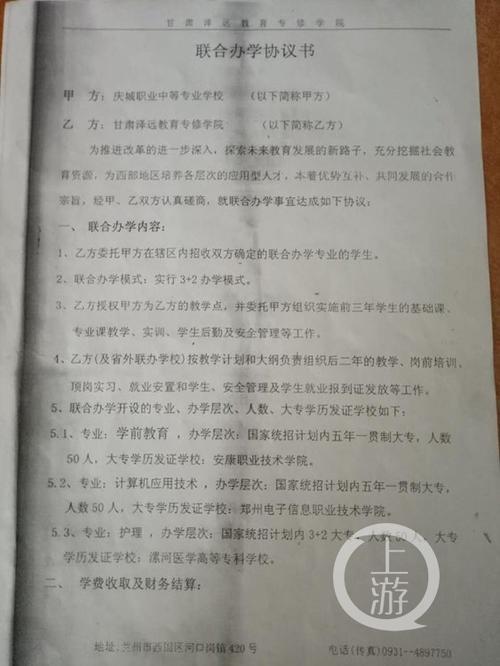 甘肃泽远教育专修学院
联合办学协议书
甲 方：庆城职业中等专业学校 （以下简称甲方）
乙 方：甘肃泽远教育专修学院 （以下简称乙方）
为推进改革的进一步深入，探索未来教育发展的新路子，充分挖掘社会教
育资源，为西部地区培养各层次的应用型人才，本着优势互补、共同发展的合作
宗旨，经甲、乙双方认真磋商，就联合办学事宜达成如下协议：
一、 联合办学内容：
1、乙方委托甲方在辖区内招收双方确定的联合办学专业的学生。
2、联合办学模式：实行 3+2 办学模式。
3、乙方授权甲方为乙方的教学点，并委托甲方组织实施前三年学生的基础课、
专业课教学、实训、学生后勤及安全管理等工作。
4、乙方(及省外联办学校)按教学计划和大纲负责组织后二年的教学、岗前培训、
顶岗实习、就业安置和学生、安全管理及学生就业报到证发放等工作。
5、联合办学开设的专业、办学层次、人数、大专学历发证学校如下：
5.1、专业：学前教育 ，办学层次：国家统招计划内五年一贯制大专，人数
50 人，大专学历发证学校：安康职业技术学院。
5.2、专业：计算机应用技术 ，办学层次：国家统招计划内五年一贯制大专，
人数 50 人，大专学历发证学校：郑州电子信息职业技术学院。
5.3、专业：护理 ，办学层次：国家统招计划内 3+2 大专，人数 50 人，大专
学历发证学校：漯河医学高等专科学校。
二、 学费收取及财务结算：
上游
地址:兰州市西固区河口岗镇 420 号 电话(传真)0931--4897750